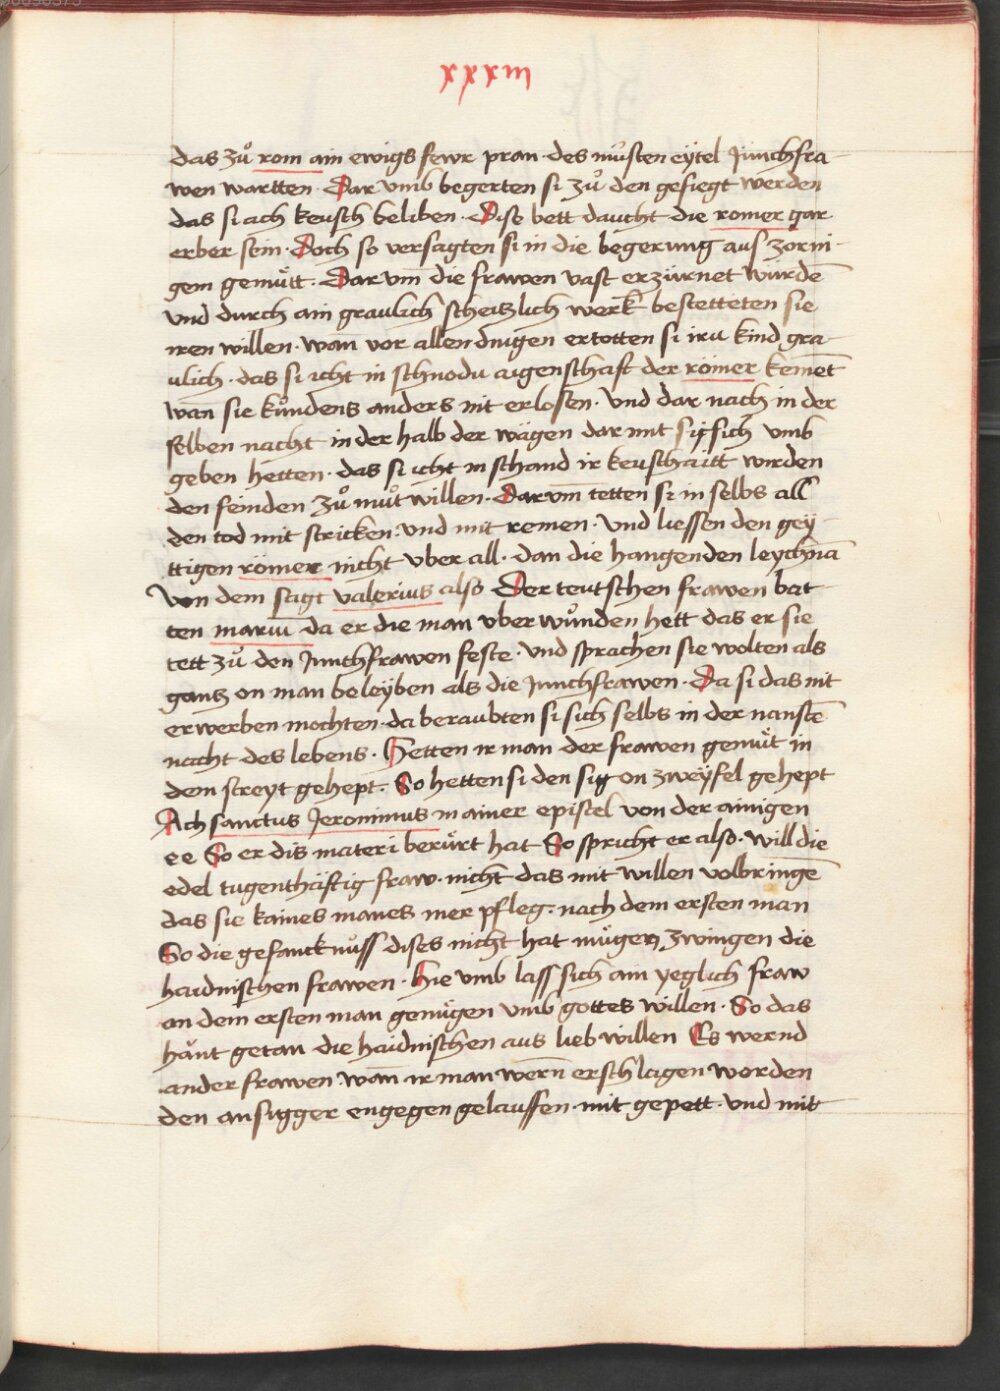 xxxiii
das zuͦ rom ain ewigs fewr pran · des muͦsten eytel Junchfra-
wen wartten · Dar vmb begerten si zuͦ den gesiegt werden
das si ach keusch beliben · Dise bett daucht die romer gar
erber sein · Doch so versagten si in die begerung aus zorni-
gem gemuͤtt · Darvm̄ die frawen vast erzürnet wurdē
vnd durch ain graulich schetzlich werk bestetteten sie
iren willen · wan vor allen dnigen ertotten si iru kind gra-
ulich · das si icht in schnodu aigenschaft der römer kemēt
wan̄ sie kuͦndens anders nit erlosen · Vnd dar nach in der
selben nacht in der halb der wägen dar mit sy sich vmb
geben hetten · das si icht in schand ir keuschaitt wurden
den feinden zuͦ muͦtwillen · Darvm̄ tetten si in selbs all
den tod mit stricken · vnd mit remen · Vnd liessen den gey-
ttigen römer nicht vber all · dan die hangenden leychnā
Von dem sagt valerius also Der teutschen frawen bat-
ten mariū da er die man vberwuͦnden hett das er sie
tett zuͦ den Junchfrawen feste · vnd sprachen sie wolten als
gantz on man beleÿben als die Junchfrawen · Da si das nit
erwerben mochten · da beraubten si sich selbs in der nanstē
nacht des lebens · Hetten ir man der frawen gemuͤt in
dem streyt gehept · So hetten si den sig on zweÿfel gehept
Ach sanctus Jeronimus in ainer epistel von der ainigen
ee So er dis materi beruͤrt hat So spricht er also · will die
edel tugenthäftig fraw · nicht das mit willen volbringē
das sie kaines manes mer pfleg · nach dem ersten man
So die gefancknuͦss dises nicht hat muͤgen zwingen die
haidnischen frawen · Hie vmb lass sich ain yeglich fraw
an dem ersten man genuͤgen vmb gottes willen · So das
hänt getan die haidnischen aus lieb willen Es wernd
ander frawen wan̄ ir man wern̄ erschlagen worden
den ansigger engegen gelauffen · mit gepett · vnd mit